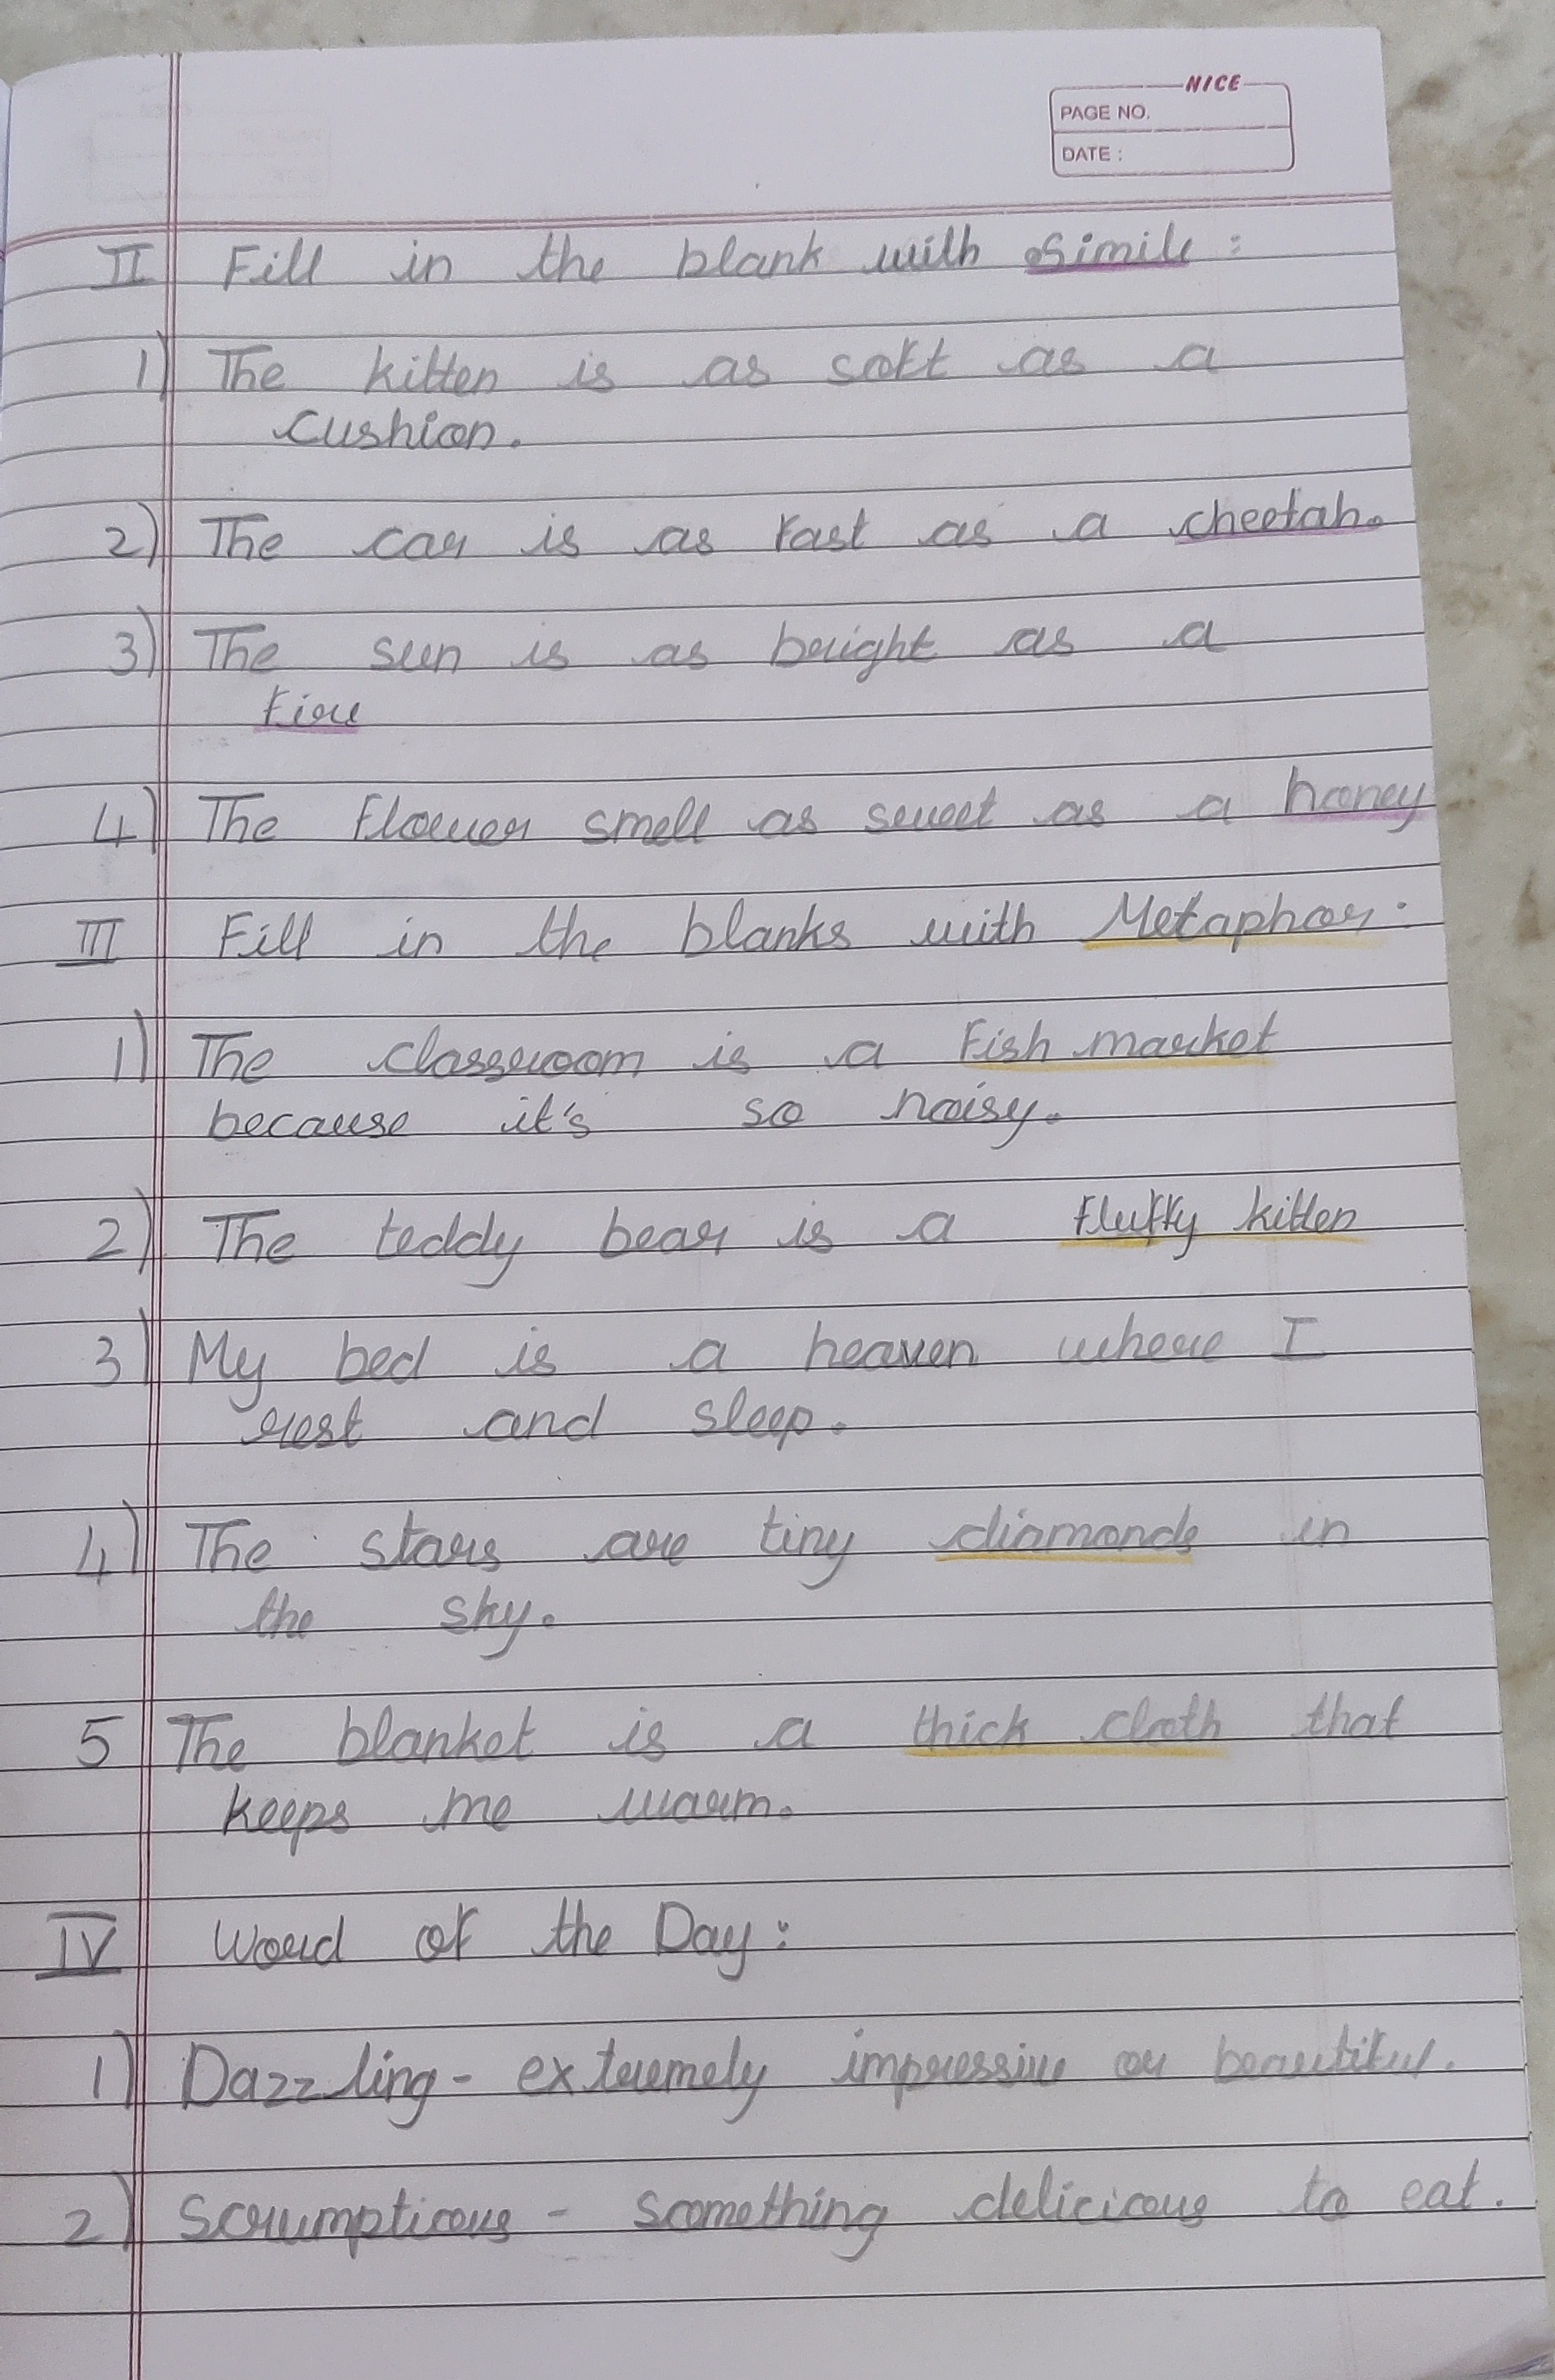 NICE
PAGE NO.
DATE :
II Fill in the blank with Simile :
1) The kitten is as soft as a
cushion.
2) The car is as fast as a cheetah.
3) The sun is as bright as a
fire
4) The flower smell as sweet as a honey
III Fill in the blanks with Metaphor:
1) The classroom is a fish market
because it's so noisy.
2) The teddy bear is a fluffy kitten
3) My bed is a heaven where I
rest and sleep.
4) The stars are tiny diamonds in
the sky.
5 The blanket is a thick cloth that
keeps me warm.
IV Word of the Day:
1) Dazzling - extremely impressive or beautiful.
2) Scrumptious - something delicious to eat.